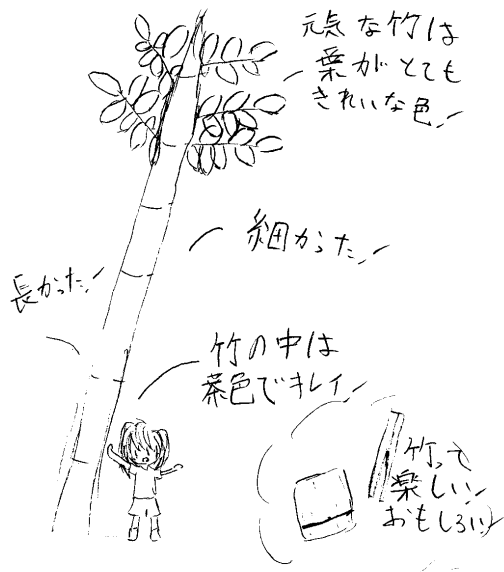 元気な竹は
葉がとても
きれいな色!
細かった!
長かった!
竹の中は
茶色でキレイ!
竹って
楽しい!
おもしろい!